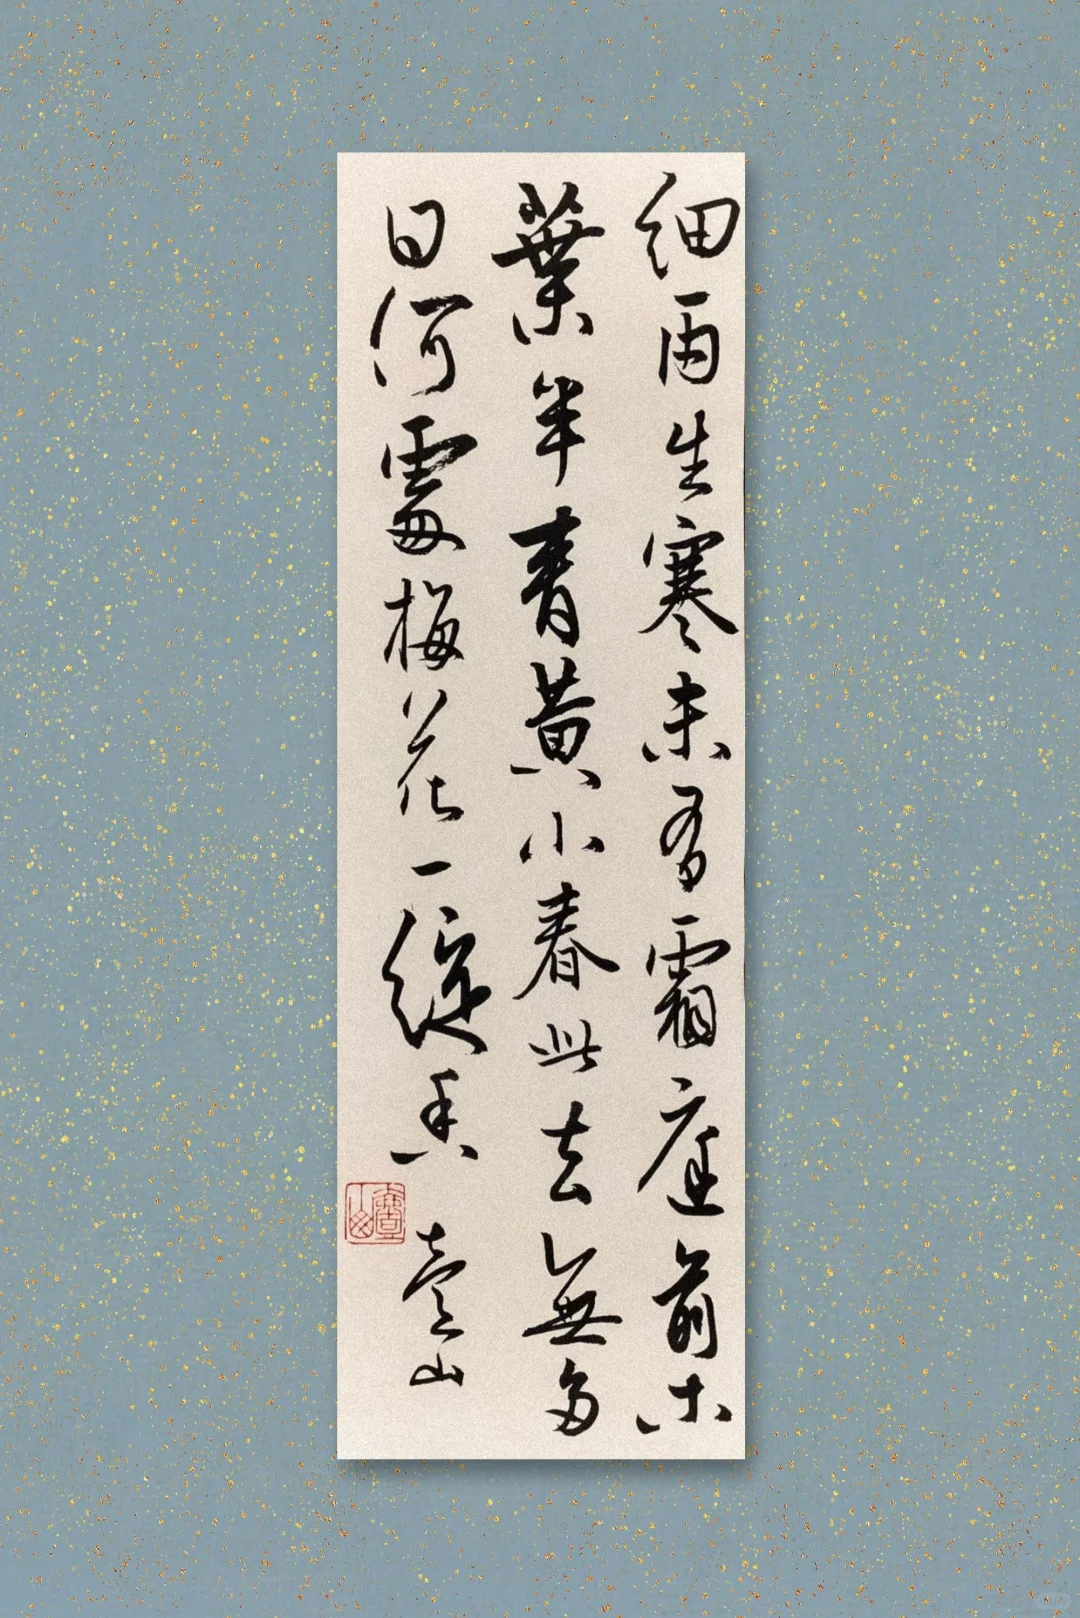 細雨生寒未有霜庭前木
葉半青黃小春此去無多
日何處梅花一綻香
山